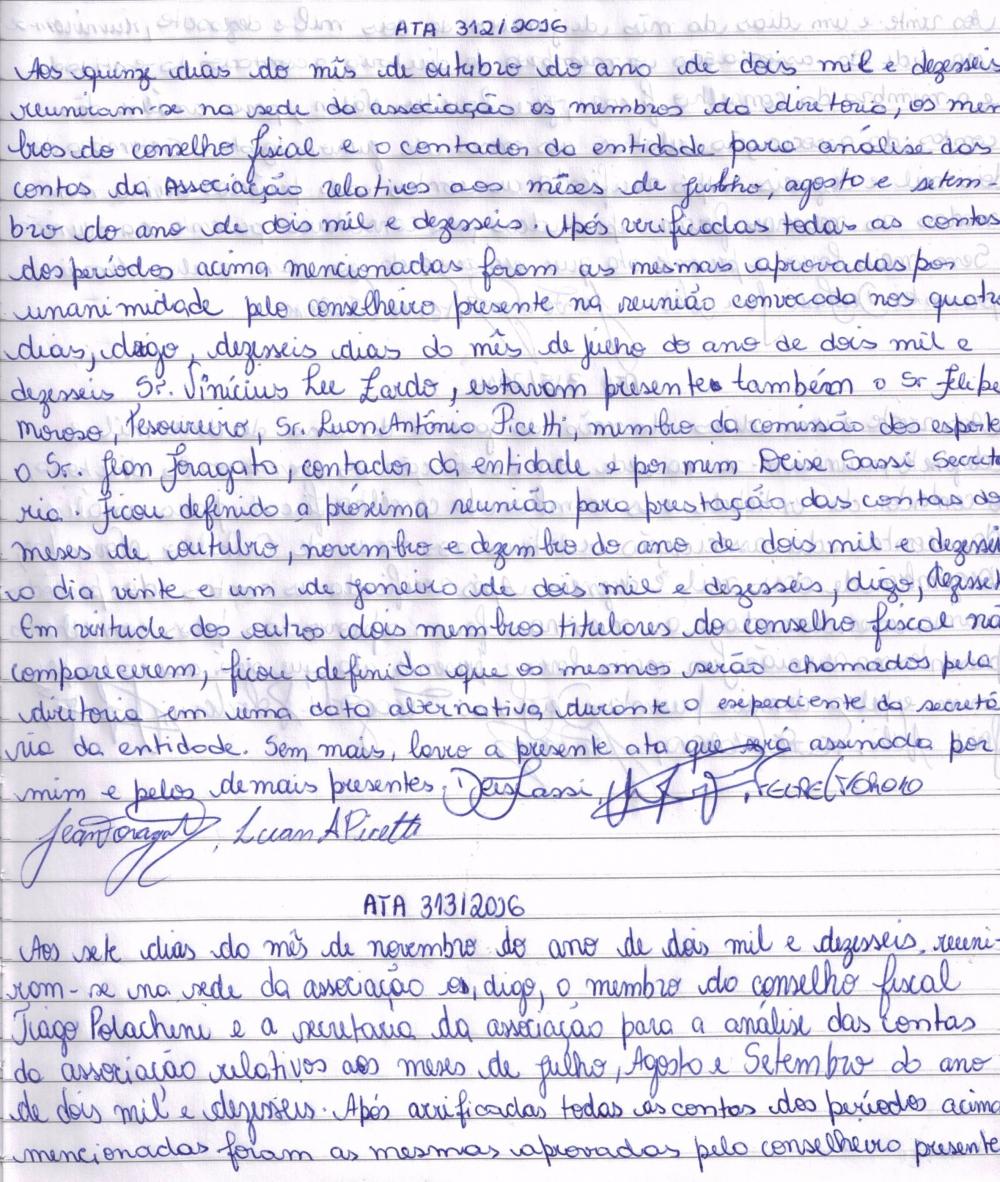 ATA 312/2016
Aos quinze dias do mês de outubro do ano de dois mil e dezesseis
reuniram-se na sede da associação os membros da diretoria, os mem
bros do conselho fiscal e o contador da entidade para análise das
contas da Associação relativos aos mêses de julho, agosto e setem-
bro do ano de dois mil e dezesseis. Após verificadas todas as contas
dos períodos acima mencionadas foram as mesmas aprovadas por
unanimidade pelo conselheiro presente na reunião convocada nos quatr
dias, digo, dezesseis dias do mês de julho do ano de dois mil e
dezesseis Sr. Vinícius Lee Zardo, estavam presentes também o Sr Felipe
Moroso, Tesoureiro, Sr. Luan Antônio Picetti, membro da comissão dos esporte
o Sr. Jean Foragato, contador da entidade e por mim Deise Sassi Secreta
ria. Ficou definido a próxima reunião para prestação das contas do
meses de outubro, novembro e dezembro do ano de dois mil e dezesse
o dia vinte e um de janeiro de dois mil e dezesseis, digo, dezesset
Em virtude dos outros dois membros titulares do conselho fiscal nã
comparecerem, ficou definido que os mesmos serão chamados pela
diretoria em uma data alternativa, durante o expediente da secretá
ria da entidade. Sem mais, lavro a presente ata que será assinada por
mim e pelos demais presentes.
Luan A Picetti
ATA 313/2016
Aos sete dias do mês de novembro do ano de dois mil e dezesseis, reuni-
ram-se na sede da associação os, digo, o membro do conselho fiscal
Tiago Polachini e a secretaria da associação para a análise das contas
da associação relativos aos meses de julho, Agosto e Setembro do ano
de dois mil e dezesseis. Após verificadas todas as contas dos períodos acima
mencionadas foram as mesmas aprovadas pelo conselheiro presente